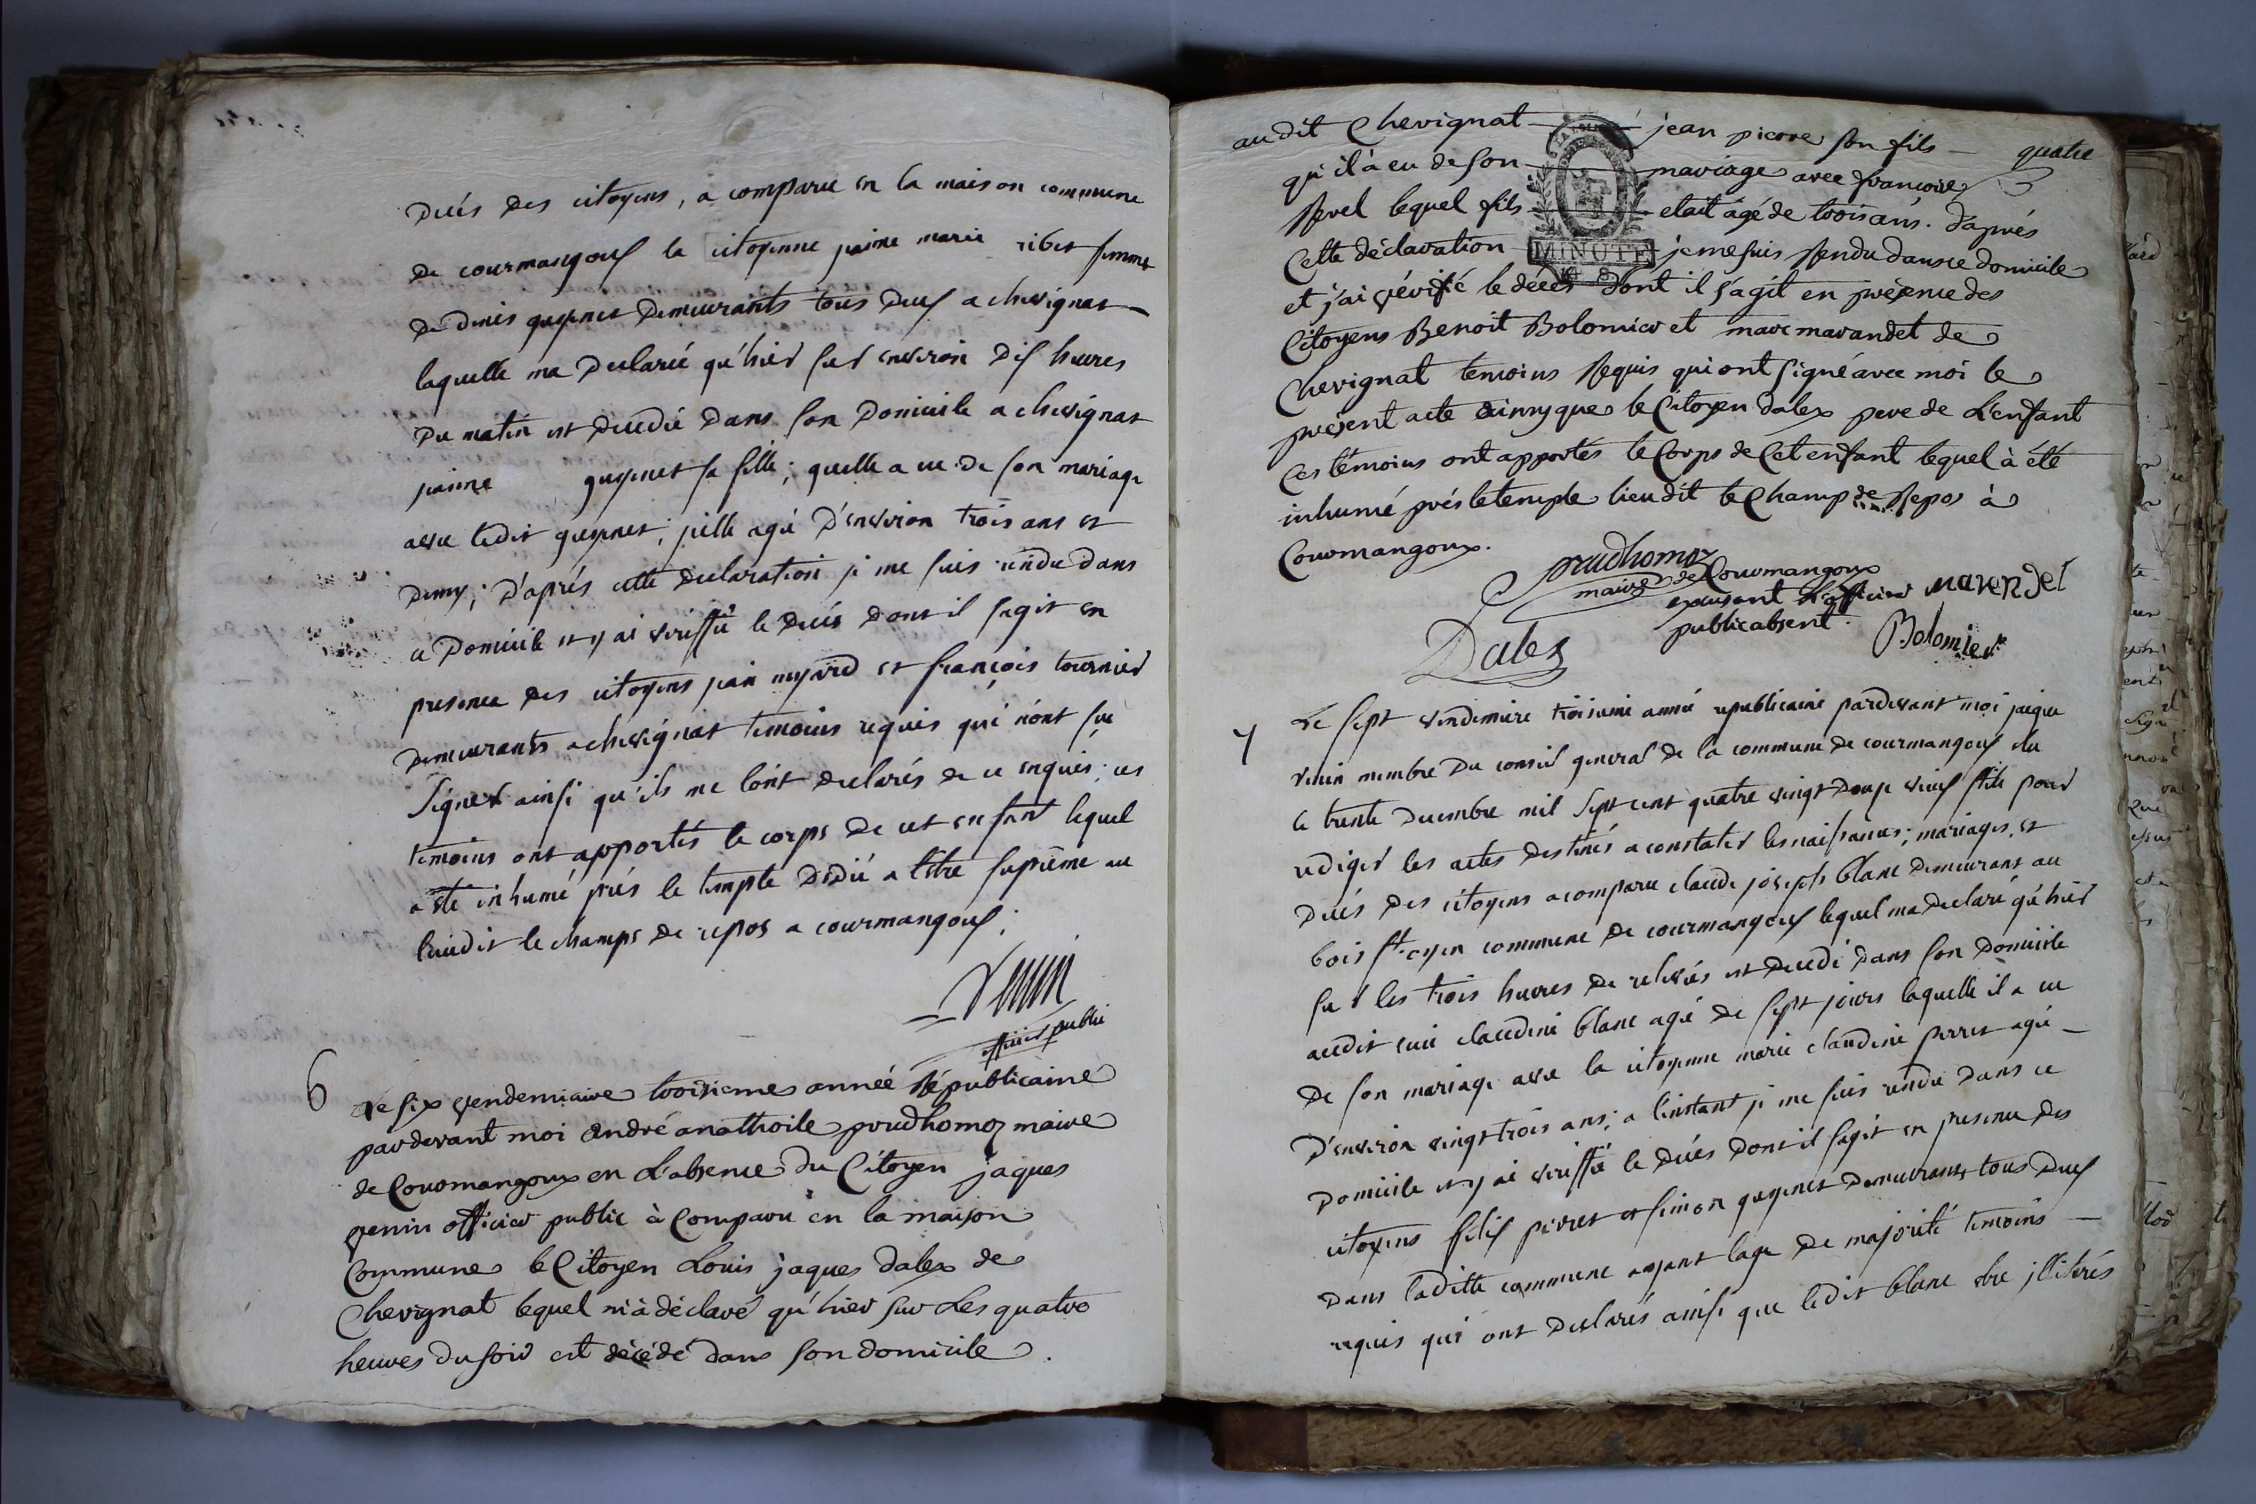 Décés des citoyens, a comparu en la maison commune
de courmangoux la citoyenne jaine marie ribet femme
de denis guyenet demeurants tous deux a chevignat
laquelle ma declaréé qu'hier sur environ dix heures
du matin est decedéé dans son domicile a chevignat
jaine guyenet sa fille; quelle a eue de son mariage
avec ledit guyenet; jcelle agéé d'environ trois ans et
demy; d'aprés cette declaration je me suis rendu dans
ce domicile et y ai veriffié le decés dont il sagit en
presence des citoyens jean et françois tournier
demeurants a chevignat temoins requis qui n'ont sçu
signer ainsi qu'ils me lont declarés de ce enquis; ces
temoins ont apportés le corps de cet enfant lequel
a été inhumé prés le temple dédié a l'étre suprême au
lieudit le champs de repos a courmangoux;
Venin
officier public
6 Le six vendemiaire troisieme année Républicaine
pardevant moi André anathoile prudhomoz maire
de Courmangoux en L'absence du Citoyen jaques
venin officier public à Comparu en la maison
Commune le Citoyen Louis jaques dalex de
Chevignat lequel m'à déclaré qu'hier sur Les quatre
heures du soir est décédé dans son domicile
audit Chevignat jean pierre son fils quatre
qu'il à eu de son mariage avec françoise
Revel lequel fils etait âgé de trois ans. d'aprés
Cette déclaration je me suis Rendu dans ce domicile
MINUTE
et j'ai vérifié le décés dont il s'agit en présence des
Citoyens Benoit Bolomier et marc marandet de
Chevignat temoins Requis qui ont signé avec moi le
présent acte ainsy que le Citoyen dalex pere de L'enfant
Ces témoins ont apportés le Corps de Cet enfant lequel à été
inhumé prés le temple lieu dit le Champ de Repos à
Courmangoux.
prudhomoz
maire de Courmangoux
exersant L'officier
public absent.
marendet
Dalex
Bolomier
7 Le sept vendemiere troisieme année republicaine pardevant moi jaique
venin membre du conseil general de la commune de courmangoux élu
le trente decembre mil sept cent quatre vingt douze vieux stile pour
rediger les actes destinés a constater les naissances; mariages, et
decés des citoyens a comparu claude joseph blanc demeurant au
bois commune de courmangoux lequel ma declaré qu'hier
sur les trois heures de relevés est decedé dans son domicile
audit claudine blanc agéé de sept jours laquelle il a eu
de son mariage avec la citoyenne marie claudine perret agéé
d'environ vingt trois ans; a l'instant je me suis rendu dans ce
domicile et y ai veriffié le decés dont il sagit en presence des
citoyens felix perret et simon guyenet demeurants tous deux
dans laditte commune ayant lage de majorité temoins
requis qui ont declarés ainsi que ledit blanc etre jllitérés